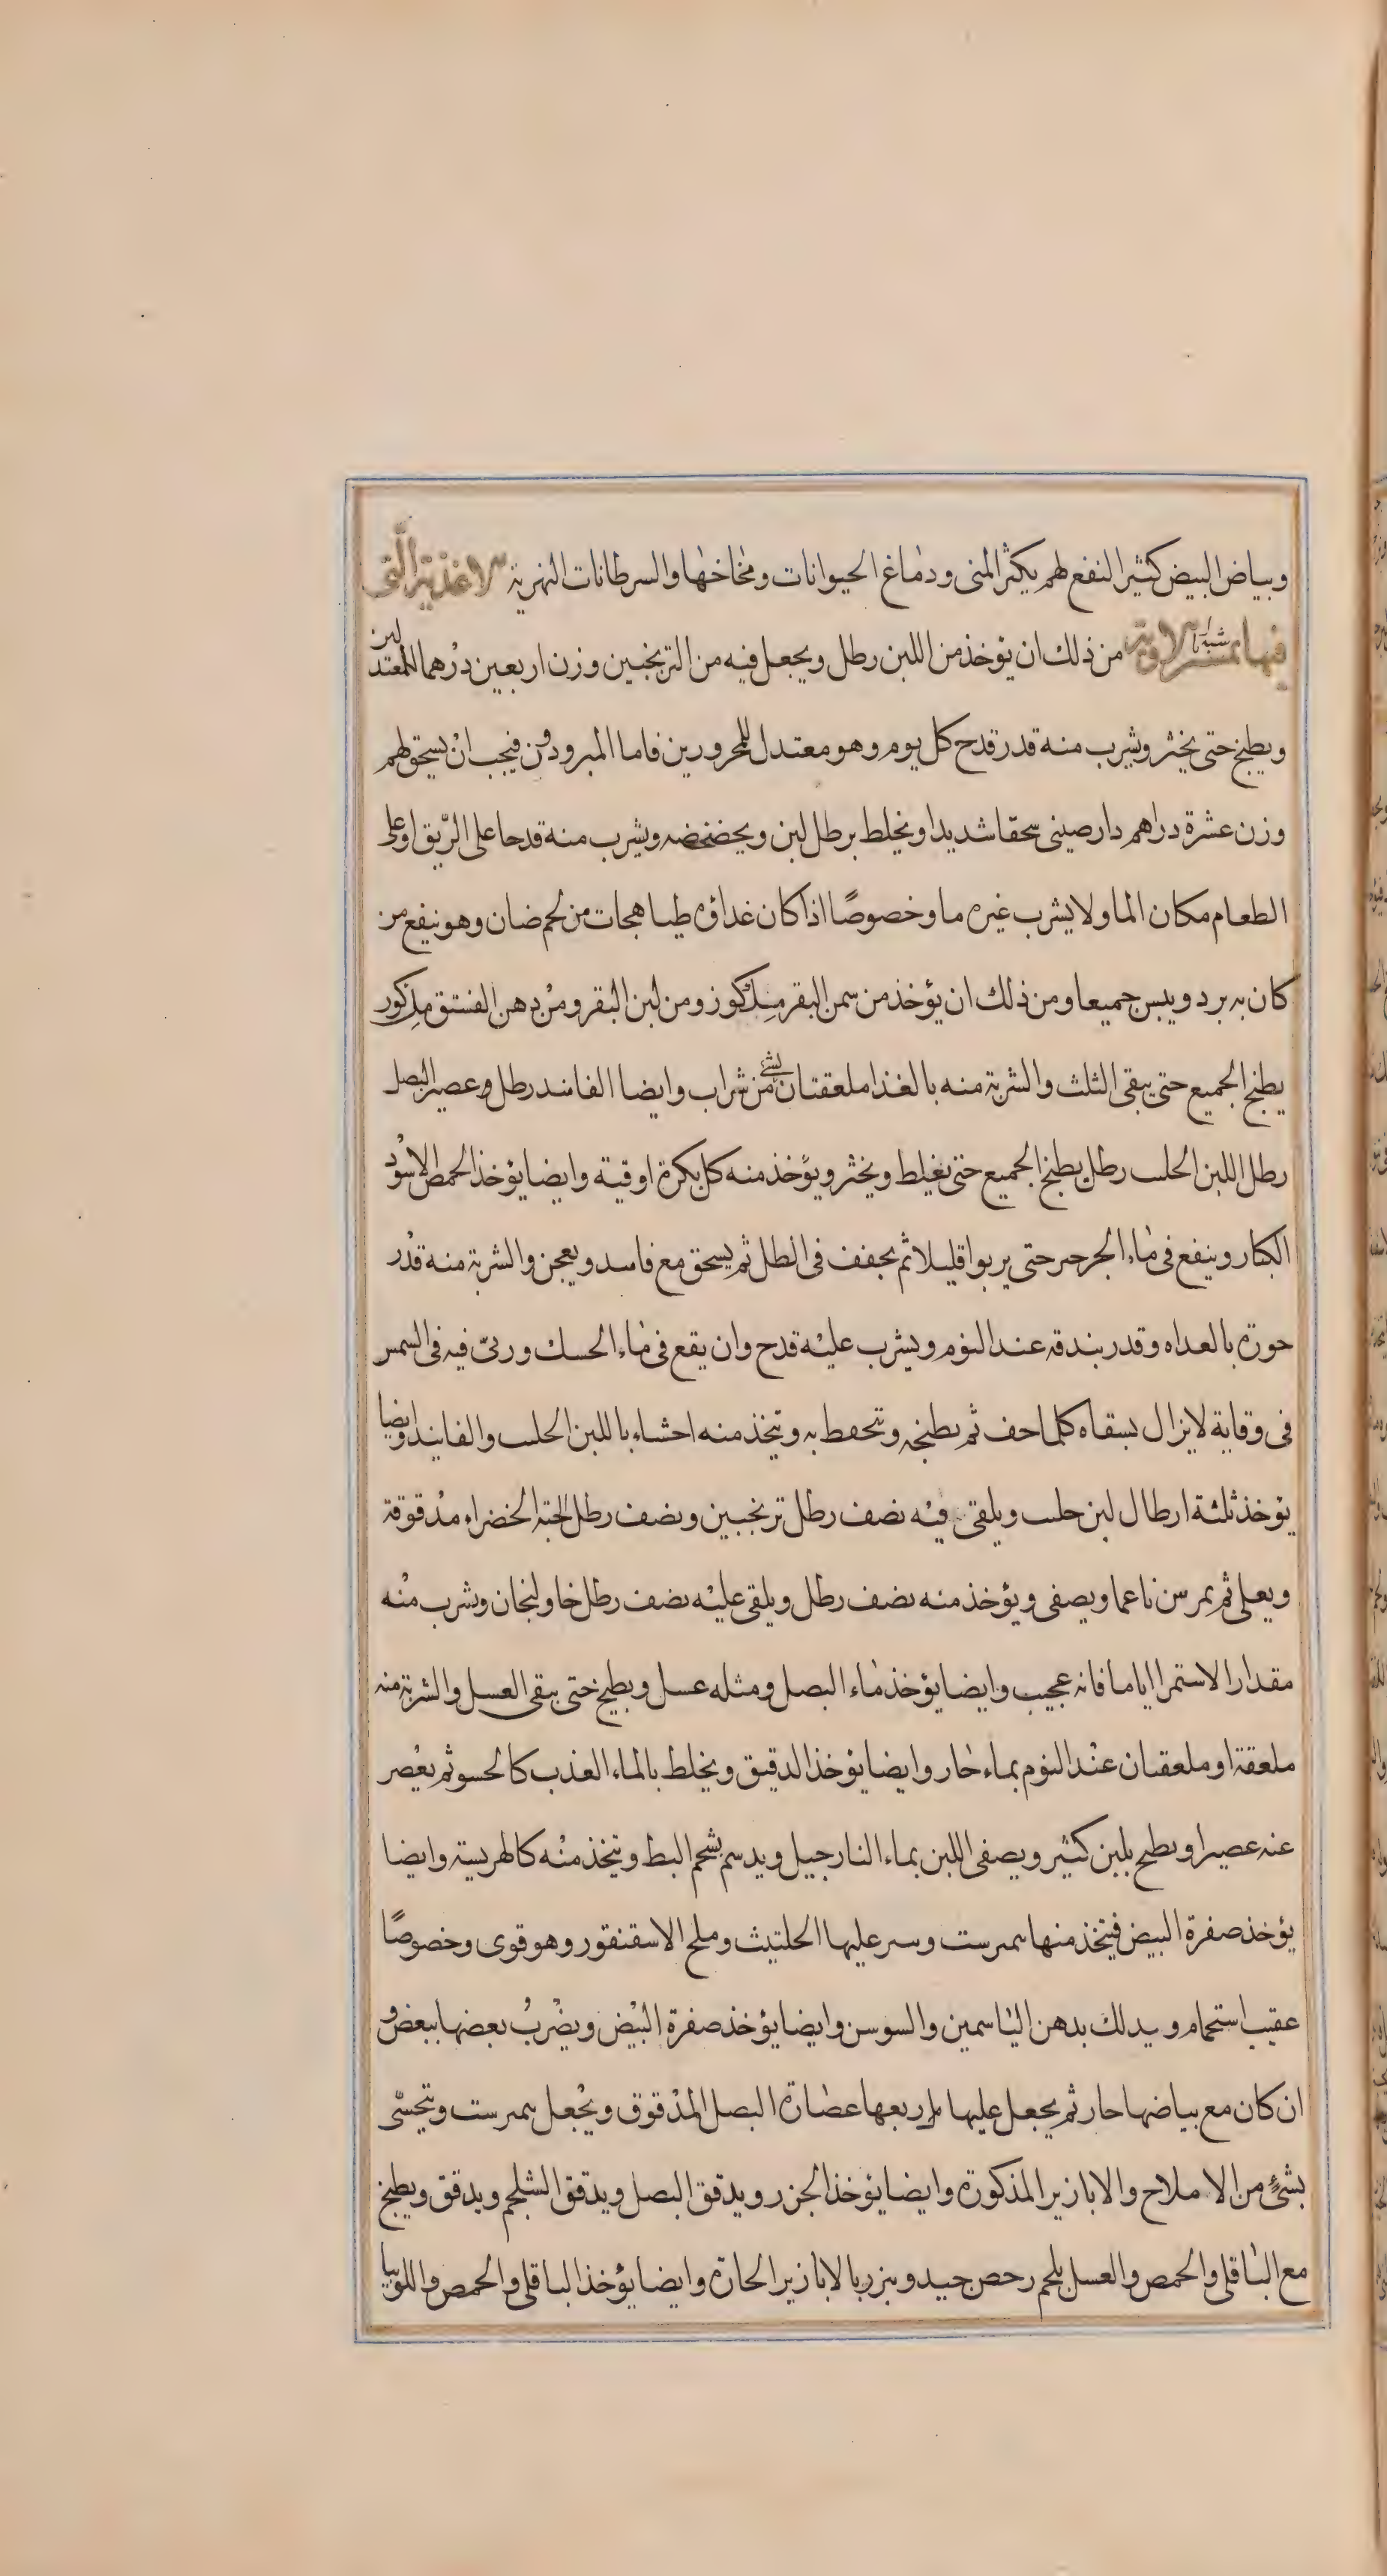 وبياض البيض كثير النفع لهم يكثر المنى ودماغ الحيوانات ومخاخها والسرطانات النهرية الاغذية التى
فيها من ذلك ان يؤخذ من اللبن رطل ويجعل فيه من الترنجبين وزن اربعين درهما للمعتدلين
ويطبخ حتى يخثر ويشرب منه قدر قدح كل يوم وهو معتدل للمحرورين فاما المبرودون فيجب ان يسحق لهم
وزن عشرة دراهم دارصينى سحقا شديدا ويخلط برطل لبن ويخضخضه ويشرب منه قدحا على الريق او على
الطعام مكان الما ولا يشرب غيره ما وخصوصًا اذا كان غداؤه طياهجات من لحم ضان وهو نيفع من
كان به برد ويبس جميعا ومن ذلك ان يؤخذ من سمن البقر كوز ومن لبن البقر ومن دهن الفستق
يطبخ الجميع حتى يبقى الثلث والشربة منه بالغذا ملعقتان بشئ من شراب وايضا الفانيد رطل وعصير البصل
رطل اللبن الحلب رطل يطبخ الجميع حتى يغلظ ويخثر ويؤخذ منه كل بكرة اوقية وايضا يؤخذ الحمص الاسود
الكبار وينفع فى ماء الجرجير حتى يربوا قليلا ثم يجفف فى الطل ثم يسحق مع فاسد ويعجن والشربة منه قدر
حوزة بالعداه وقدر بندقه عند النوم ويشرب عليه قدح وان يقع فى ماء الحسك وربىّ فيه فى السمس
فى وقاية لا يزال يسقاه كلما احف ثم يطبخه وتحفط به وتتخذ منه احشاء باللبن الحلب والفانيد وايضا
يؤخذ ثلثة ارطال لبن حلب ويلقى فيه نصف رطل ترنجبين ونصف رطل الحبة الخضراء مدقوقة
ويعلى ثم يمرس ناعما ويصفى ويؤخذ منه نصف رطل ويلقى عليه نصف رطل خاولنجان ويشرب منه
مقدار الاستمرا اياما فانه عجيب وايضا يؤخذ ماء البصل ومثله عسل ويطبخ حتى يبقى العسل والشربة منه
ملعقة او ملعقتان عند النوم بماء حار وايضا يؤخذ الدقيق ويخلط بالماء العذب كالحسو ثم يعصر
عنه عصيرا ويطبخ بلبن كثير ويصفى اللبن بماء النارجيل ويدسم بشحم البط ويتخذ منه كالهريسة وايضا
يؤخذ صفرة البيض فيتخذ منها نمبرست وسر عليها الحلتيث وملح الاسقنقور وهو قوى وخصوصًا
عقيب استحمام ويدلك بدهن الياسمين والسوسن وايضا يؤخذ صفرة البيض ويضرب بعضها ببعض و
ان كان مع بياضها حار ثم يجعل عليها ربعها عصارة البصل المدقوق ويجعل نمبرست ويتحسّى
بشئٍ من الاملاح والابازير المذكورة وايضا يؤخذ الجزر ويدقق البصل ويدقق الشلجم ويدقق ويطبخ
مع الباقلى والحمص والعسل بلحم رحص جيد ويبزر بالابازير الحارة وايضا يؤخذ الباقلى والحمص واللوبيا